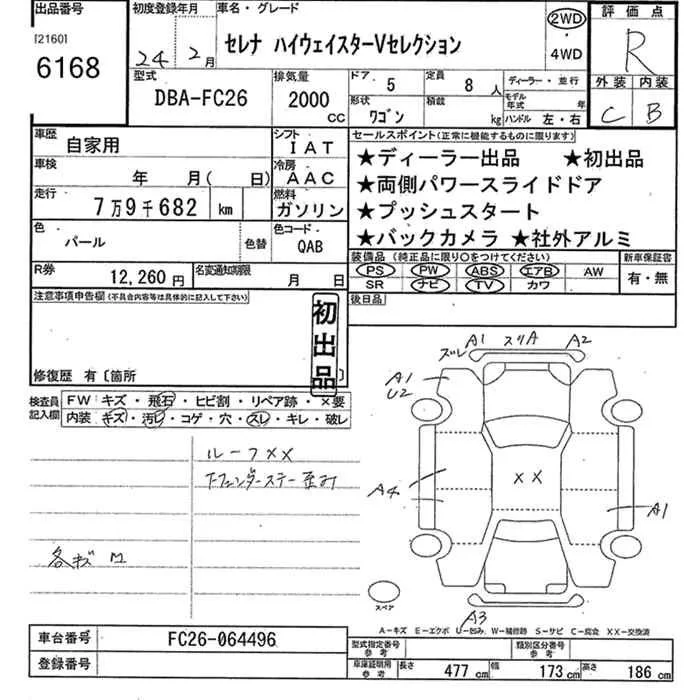 出品番号 初度登録年月 車名・グレード 2WD 評価点
[2160]
6168 24年 2月 セレナ ハイウェイスターVセレクション ・ 4WD R
型式 排気量 ドア 5 定員 8人 ディーラー・並行 外装 内装
DBA-FC26 2000CC 形状 ワゴン 積載 kg モデル年式 年 ハンドル 左・右 C B
車歴 自家用 シフト IAT セールスポイント(正常に機能するものに限ります)
車検 年 月( 日) 冷房 AAC ★ディーラー出品 ★初出品
走行 7万9千682 km 燃料 ガソリン ★両側パワースライドドア
★プッシュスタート
色 パール 色替 色コード QAB ★バックカメラ ★社外アルミ
R券 12,260円 名変通知期限 月 日 装備品(純正品に限り○をつけてください) 新車保証書
PS PW ABS エアB AW 有・無
SR ナビ TV カワ
注意事項申告欄(不具合内容等は具体的に記入して下さい) 後日品
初出品
修復歴 有〔箇所 〕
検査員記入欄 FW キズ・飛石・ヒビ割・リペア跡・×要
内装 キズ・汚レ・コゲ・穴・スレ・キレ・破レ
ルーフXX
各キズ
A1 スリA A2
ズレ
A1
U2
XX
A4
A1
A3
スペア
A-キズ E-エクボ U-凹み W-補修跡 S-サビ C-腐食 XX-交換済
車台番号 FC26-064496 型式指定番号 参考 類別区分番号 参考
登録番号 車庫証明用 参考 長さ 477cm 幅 173cm 高さ 186cm